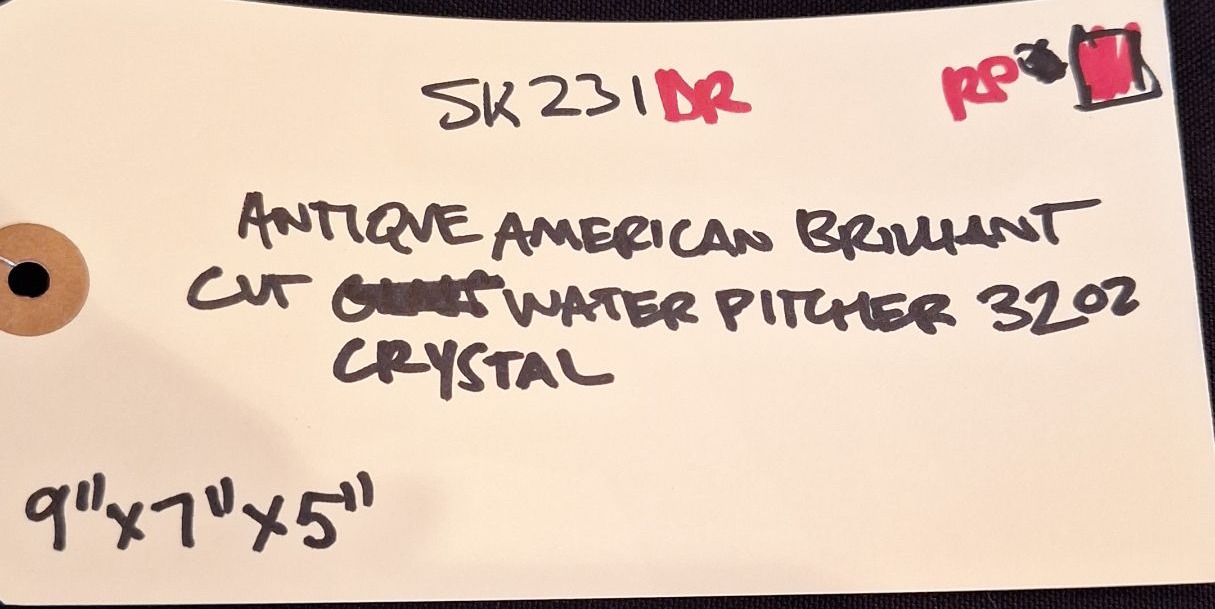 SK231DR
RP
ANTIQUE AMERICAN BRILLIANT
CUT WATER PITCHER 32OZ
CRYSTAL
9"x7"x5"